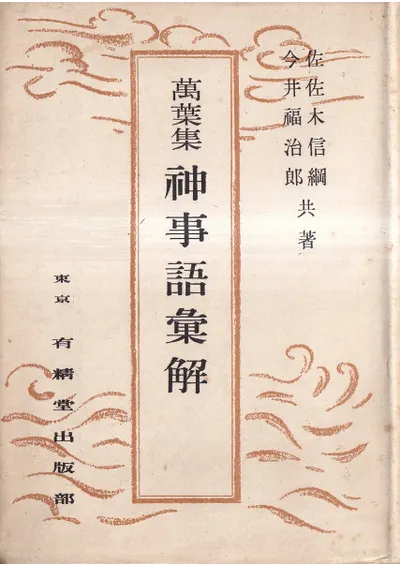 佐佐木信綱
今井福治郎 共著
萬葉集 神事語彙解
東京 有精堂出版部